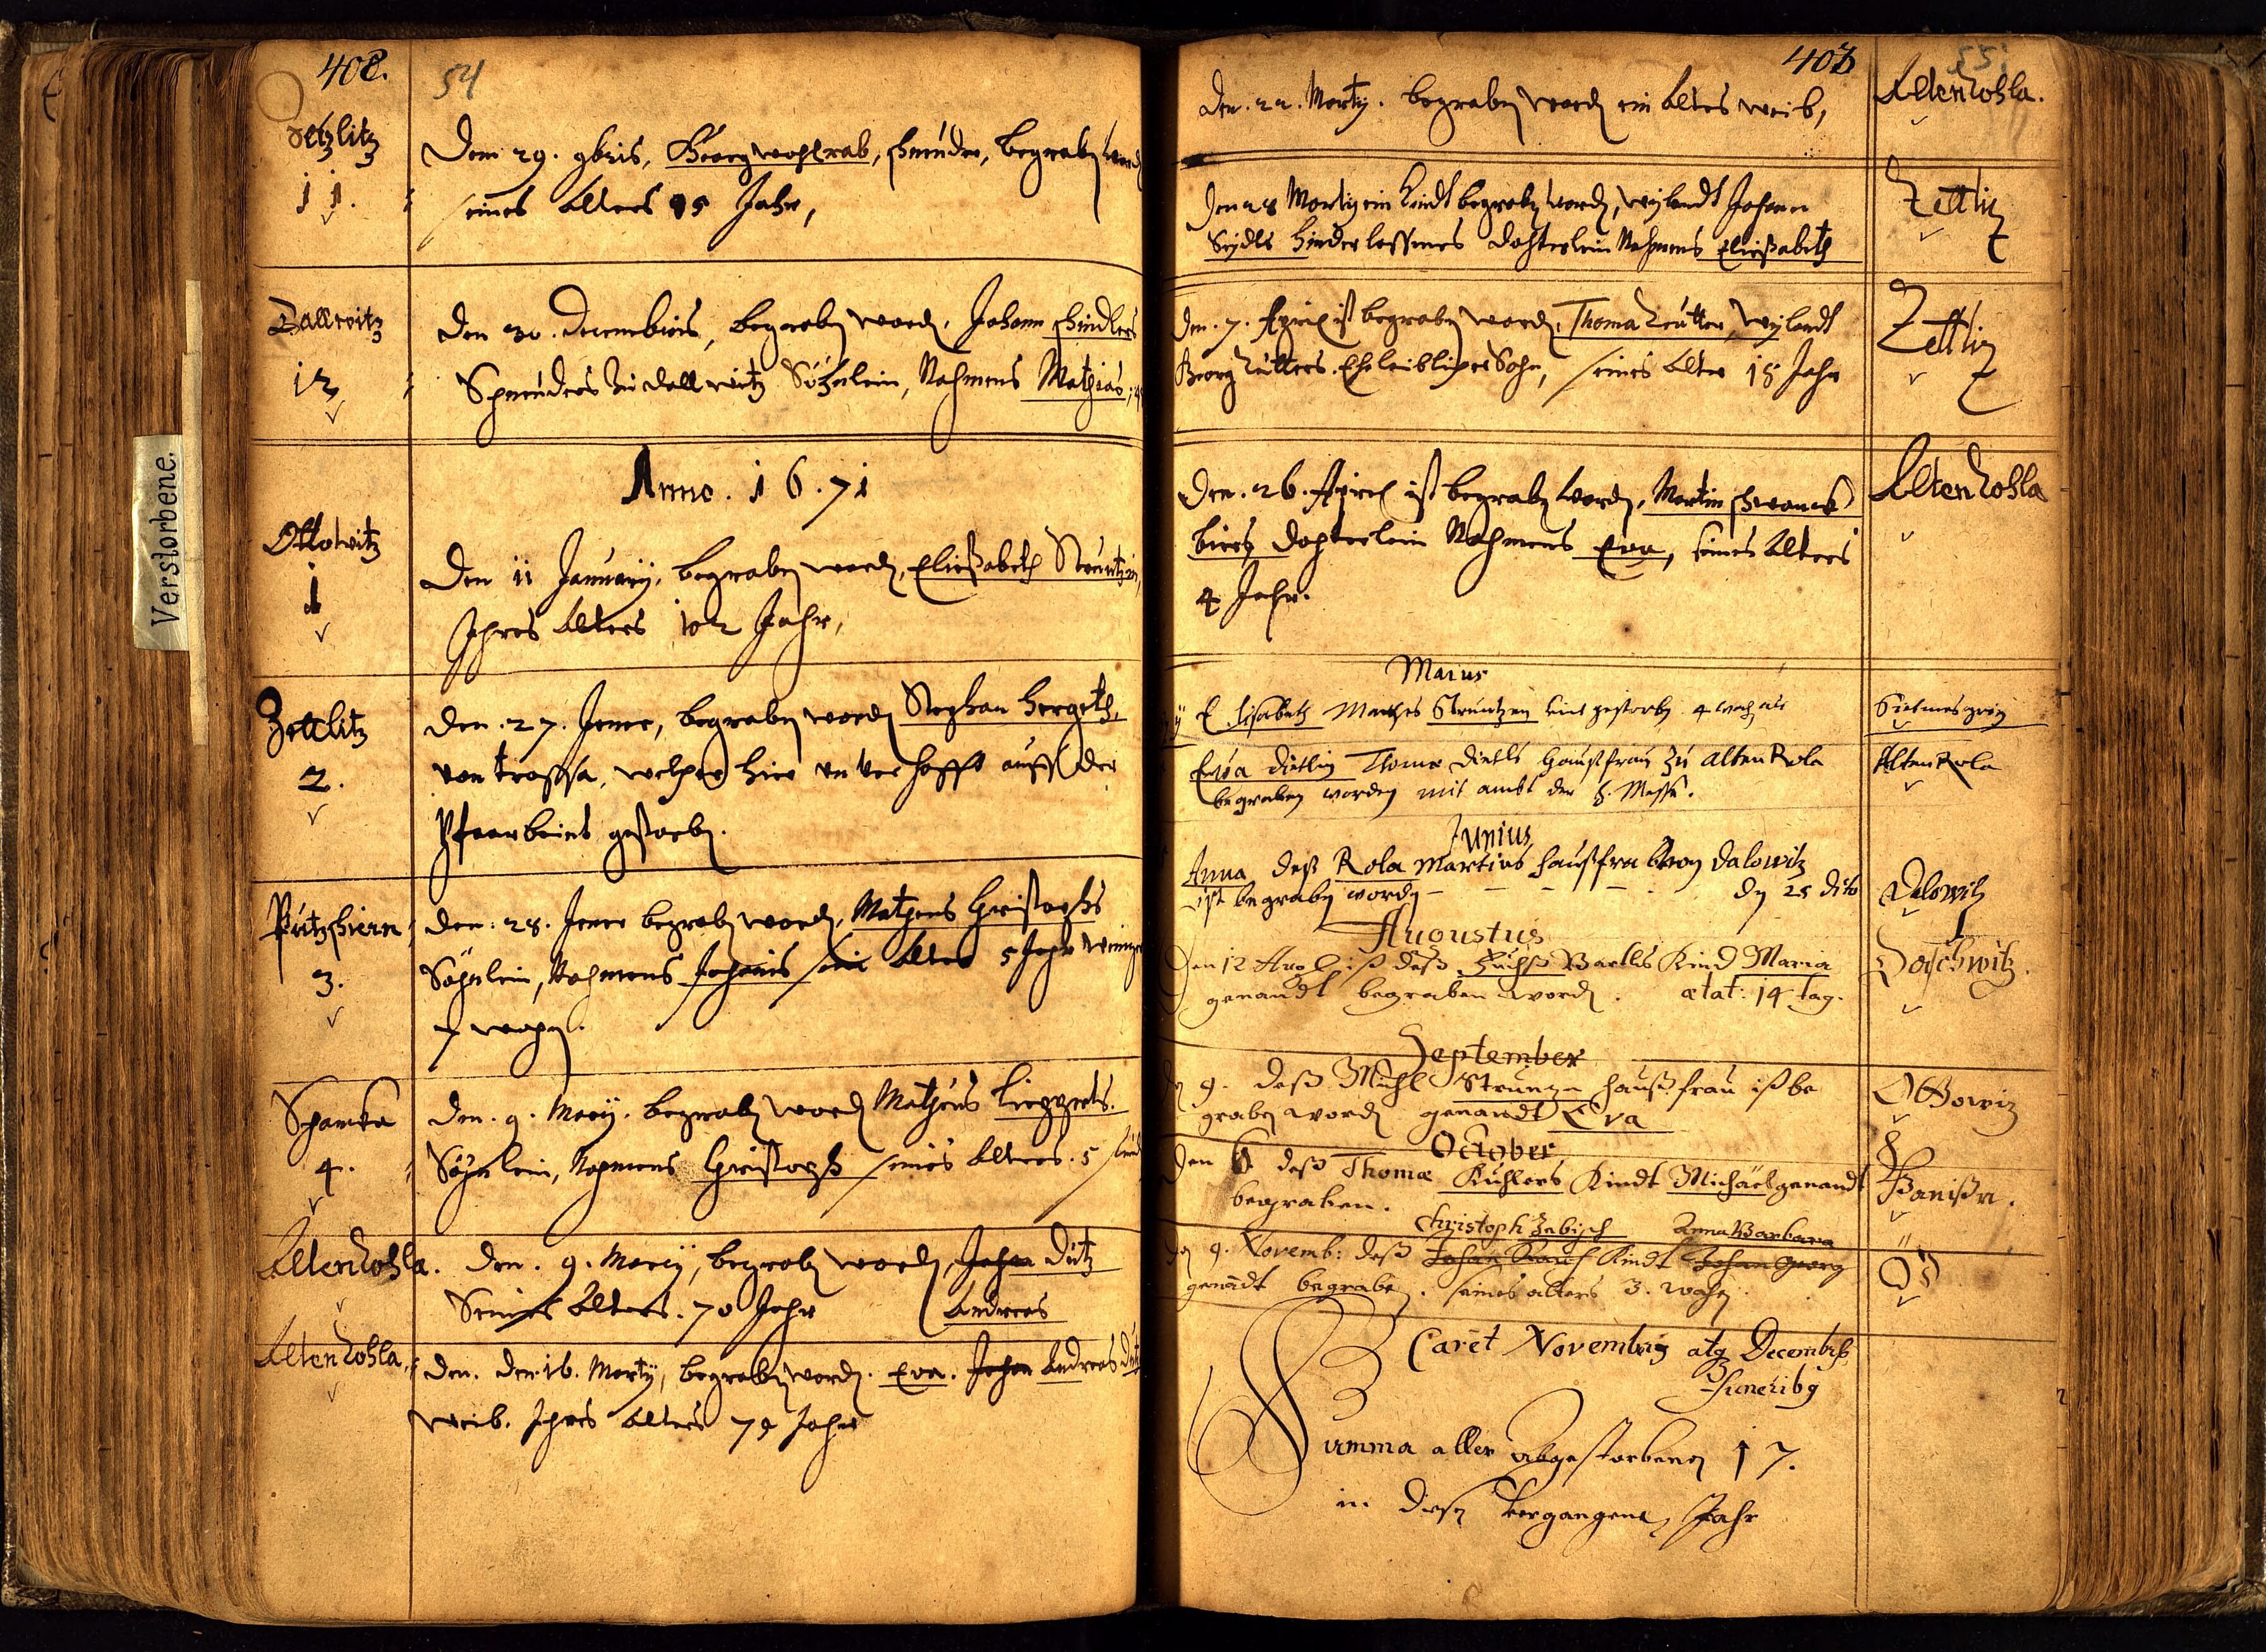 402.
54
Zetlitz
11.
Dem 29. 9bris, Georg Wohlrab, Schneider, begraben worden
seines Alters 95 Jahr,
Dallwitz
12
Den 30. Decembris, begraben worden, Johann Schindlers
Schneiders zu Dallwitz Söhnlein, Nahmens Mathias,
Anno. 1671
Ottowitz
1
Den 11 January, begraben worden, Eließabeth Struntzin,
Ihres Alters 102 Jahr,
Zettlitz
2.
Den. 27. Jener, begraben worden Stephan Hergeth,
von trossa, welcher hier unverhofft auff der
Pfaar gestorben.
Putzschiern
3.
Den: 28. Jener begraben worden, Matheus Christophs
Söhnlein, Nahmens Johannis sein Alter 5 Jahr weniger
7 wochen.
Schanka
4.
Den. 9. Marty. begraben worden Matheus
Söhnlein, Nahmens Christoph seines Alters. 5
Alten Rohla.
Den. 9. Marty, begraben worden, Johan Dütz
Seines Alters. 70 Jahr Andreas
Alten Rohla
Den. den 16. Marty, begraben worden. Eva. Johan Andreas Dütz
weib. Ihres Alters 79 Jahr
Verstorbene.
403
55
Den. 22. Marty. begraben worden ein Altes weib,
Alten Rohla.
Den 28 Marty ein Kindt begraben worden, weylandt Johann
Seydls hinderlassenes Dochterlein Nahmens Eließabeth
Zettlitz
Den. 7. April ist begraben worden, Thoma Reutter, weylandt
Georg Reutters Eheleiblicher Sohn, seines Alter 18 Jahr
Zettlitz
Den. 26. April ist begraben worden, Martin Schwanck
Dochterlein Nahmens Eva, seines Alters
4 Jahr.
Alten Rohla
Maius
Elisabeth Matthes Struntzen kint gestorben 4 woch alt
Sitmesgrün
Eva Dietlin Thomæ Dietls Haußfrau zu alten Rola
begraben worden mit ambt der H. Messe.
Alten Rola
Junius
Anna deß Rola Martins haußfrau von Dalowitz
ist begraben worden - - - - dn 25 dito
Dalowitz
Augustus
Den 12 Aug ist deß Fuchß Bartls Kind Maria
genandt begraben worden. ætat: 14 tag.
September
9. deß Mühl Struntzn haußfrau ist be
graben worden genandt Eva
Ottowiz
October
Den 6 deß Thomæ Kühlers Kindt Michäel genandt
begraben.
Christoph Zabisch Anna Barbara
Den 9. Novemb: deß Johan Kindt Johan Georg
genãdt begraben. seines alters 3. wochen.
Caret Novembris atq Decembris
funeribg
Summa aller abgestorbenen 17.
in diesen vergangenen Jahr